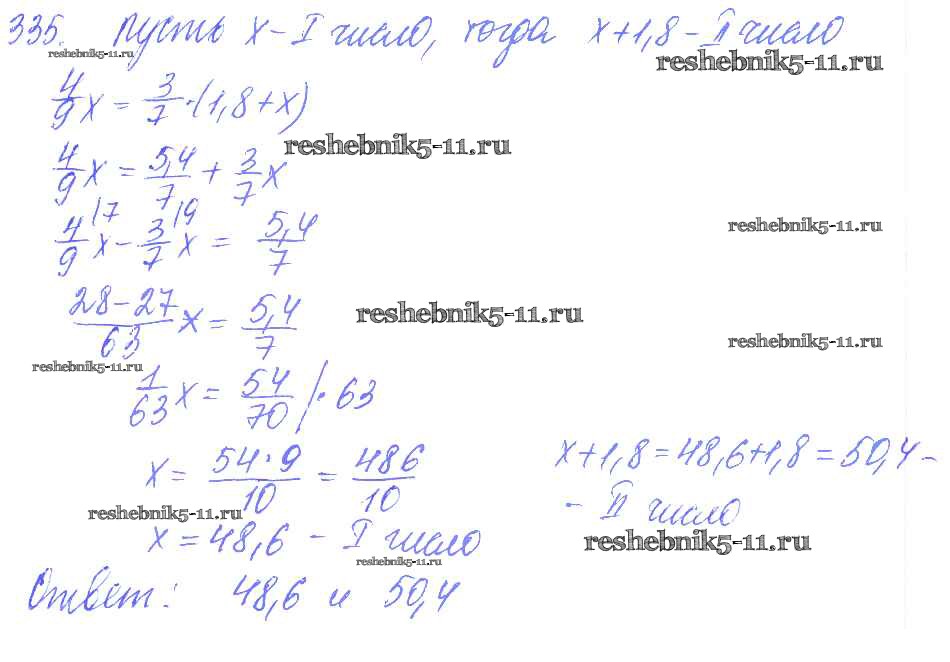 335. Пусть x – I число, тогда x+1,8 – II число
reshebnik5-11.ru
reshebnik5-11.ru
4/9 x = 3/7 · (1,8+x)
reshebnik5-11.ru
4/9 x = 5,4/7 + 3/7 x
4/9 |7 x – 3/7 |9 x = 5,4/7
reshebnik5-11.ru
28–27/63 x = 5,4/7
reshebnik5-11.ru
reshebnik5-11.ru
reshebnik5-11.ru
1/63 x = 54/70 |· 63
x = 54·9/10 = 486/10
x+1,8 = 48,6+1,8 = 50,4 –
– II число
reshebnik5-11.ru
x = 48,6 – I число
reshebnik5-11.ru
reshebnik5-11.ru
Ответ: 48,6 и 50,4